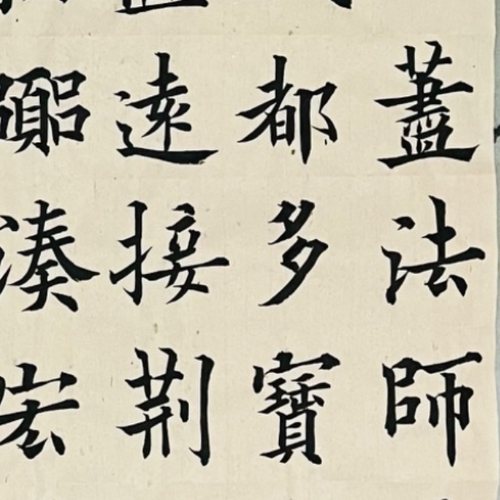 蓋法師
都多寶
遠接荆
湊宏